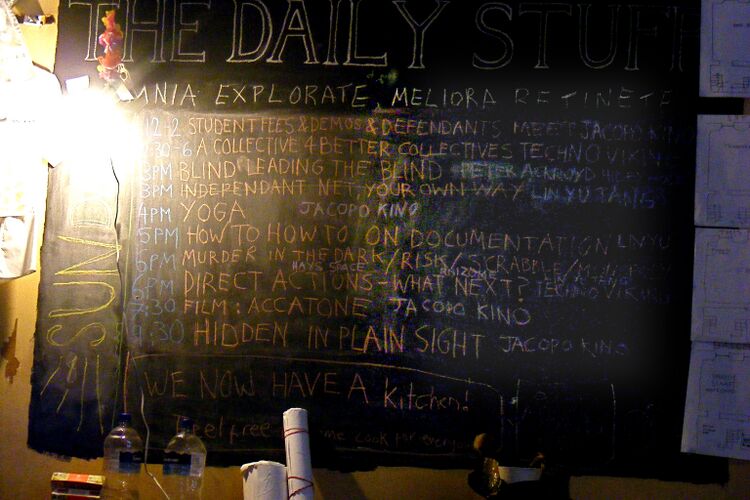 THE DAILY STUFF
OMNIA EXPLORATE, MELIORA RETINETE
12-2 STUDENT FEES & DEMOS & DEFENDANTS MEET JACOPO KINO
:30-6 A COLLECTIVE 4 BETTER COLLECTIVES TECHNO VIKING
3PM BLIND LEADING THE BLIND PETER
3PM INDEPENDANT NET, YOUR OWN WAY LIN YUTANG
4PM YOGA JACOPO KINO
5PM HOW TO HOW TO ON DOCUMENTATION LINYU
6PM MURDER IN THE DARK/RISK/SCRABBLE/
HAYS SPACE RHIZOME
6PM DIRECT ACTIONS-WHAT NEXT? TECHNO VIKING
7:30 FILM: ACCATONE JACOPO KINO
9:30 HIDDEN IN PLAIN SIGHT JACOPO KINO
SUN
WE NOW HAVE A Kitchen!
Feel free cook for everyone